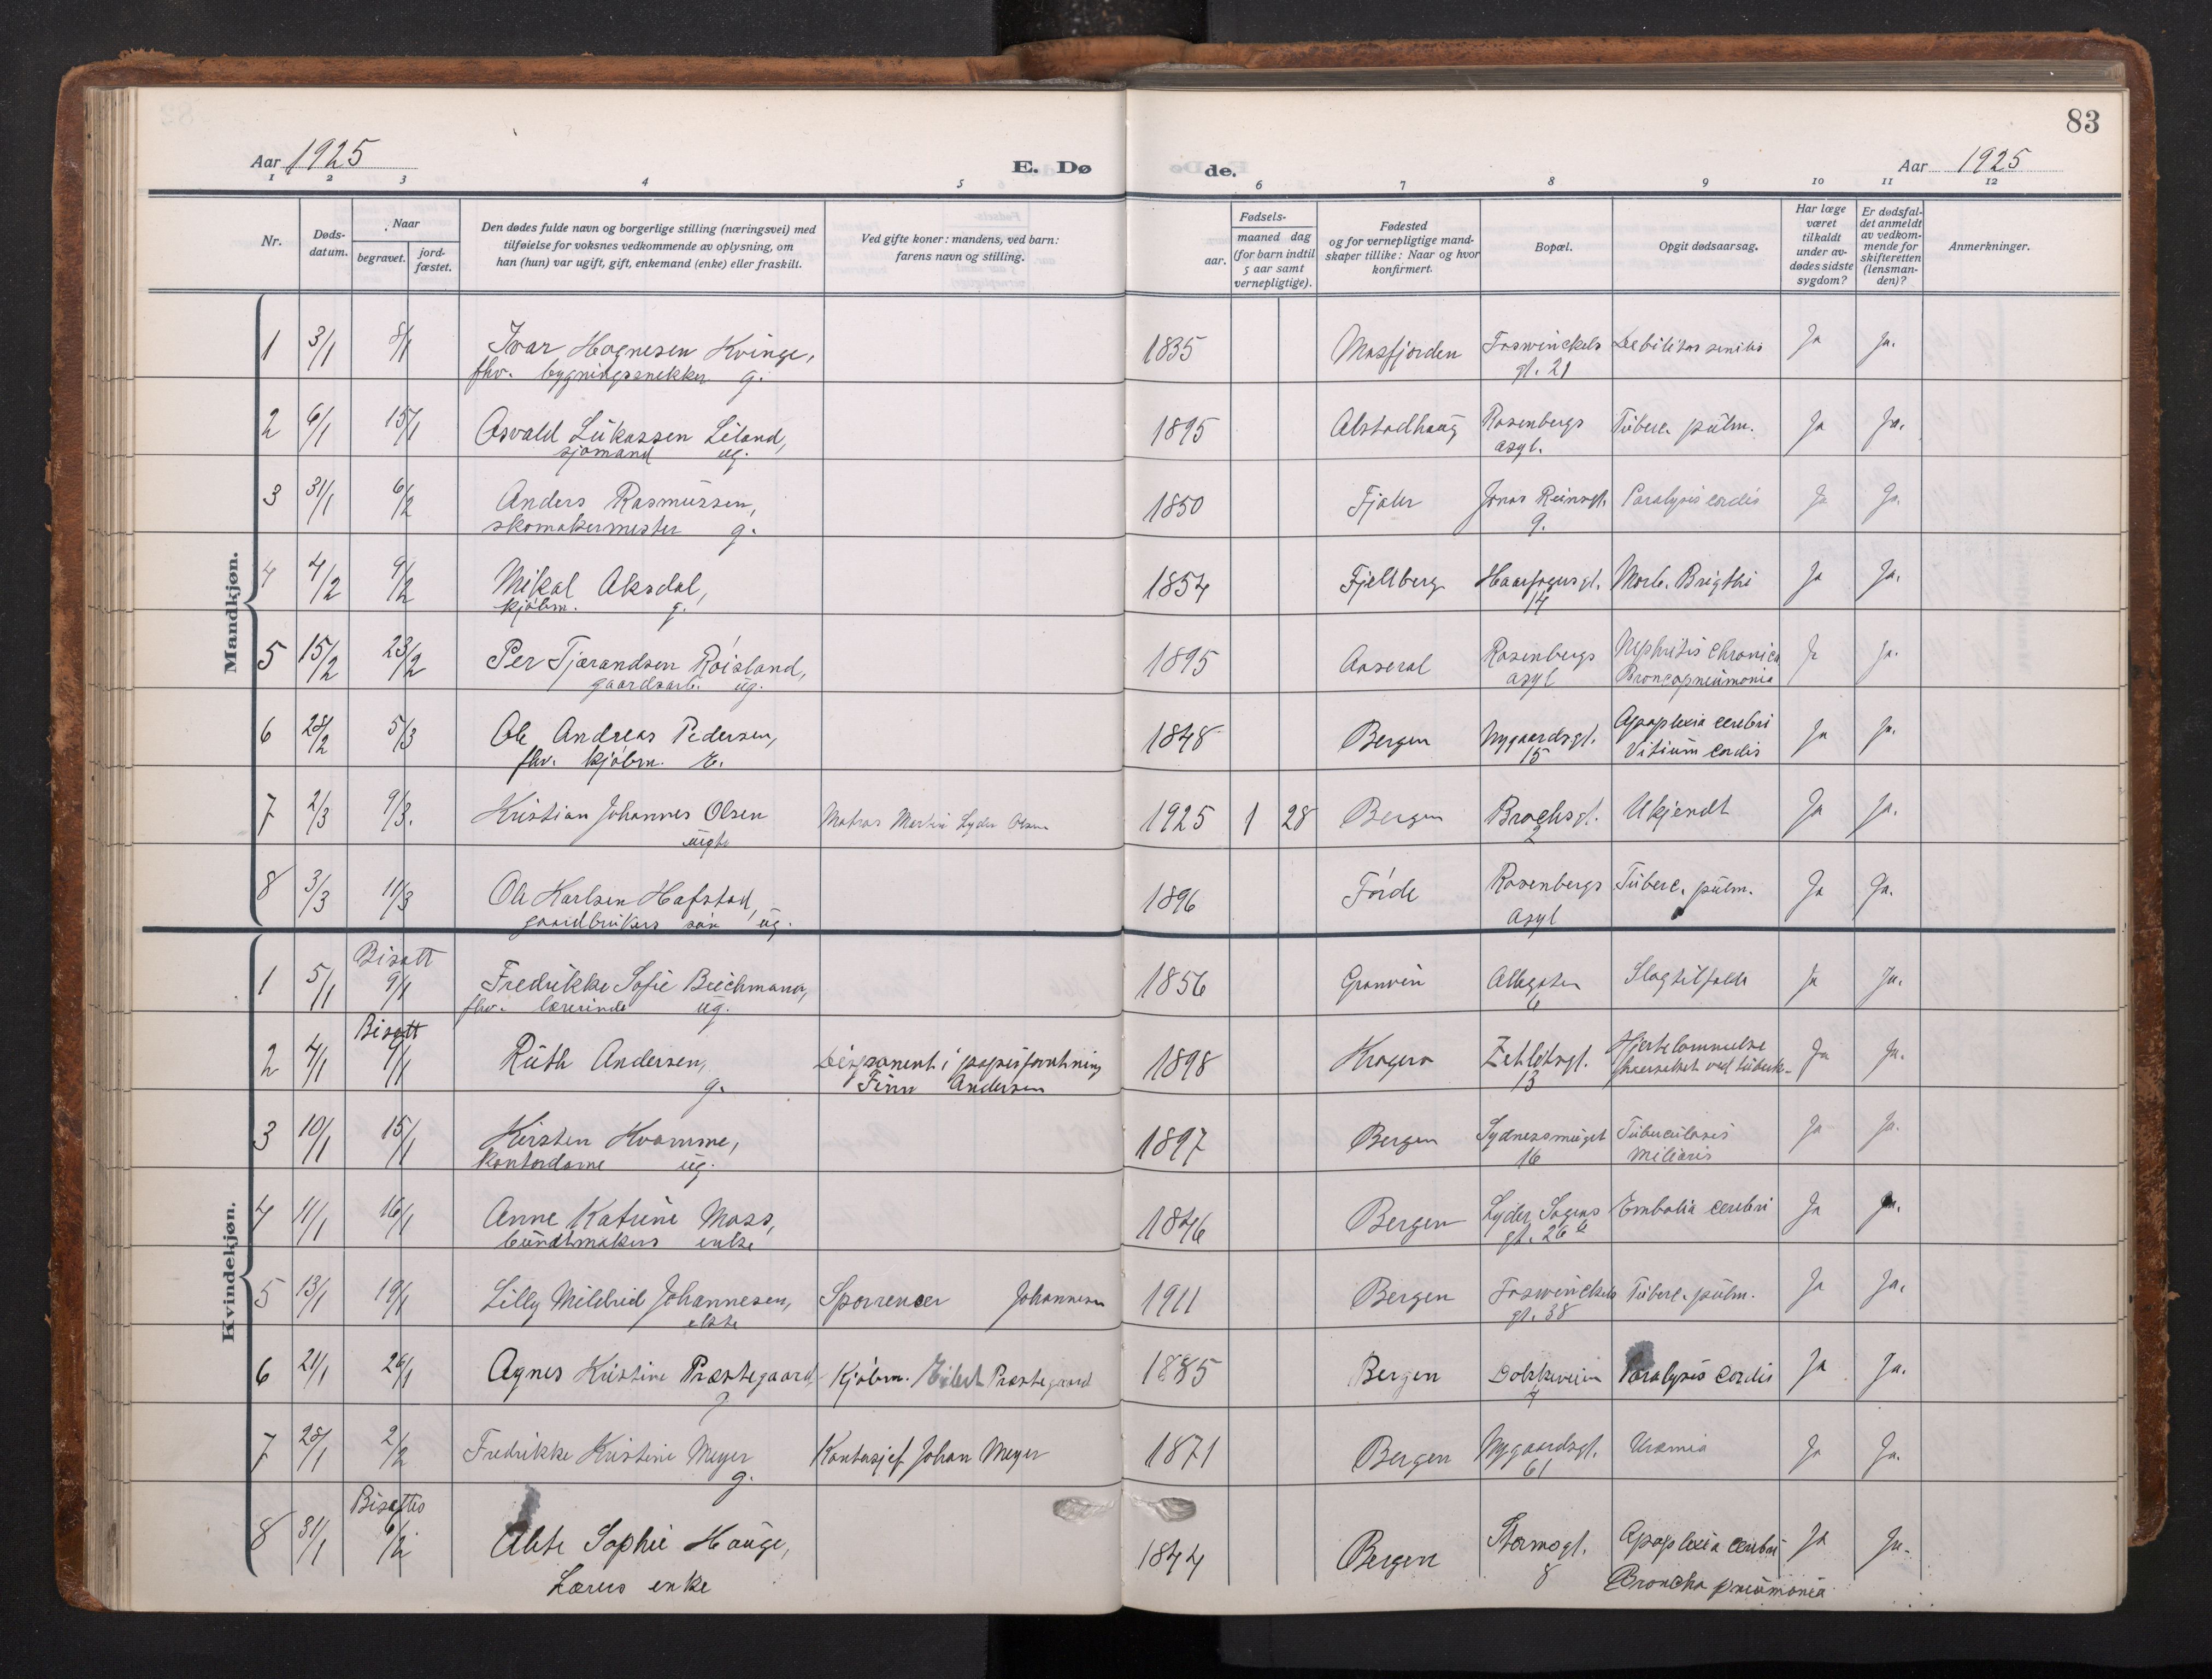 83
Aar 1925
E. Dø
de.
Aar 1925
1 2 3 4 5 6 7 8 9 10 11 12
Nr.
Døds-
datum.
Naar
begravet.
jord-
fæstet.
Den dødes fulde navn og borgerlige stilling (næringsvei) med
tilføielse for voksnes vedkommende av oplysning, om
han (hun) var ugift, gift, enkemand (enke) eller fraskilt.
Ved gifte koner: mandens, ved barn:
farens navn og stilling.
Fødsels-
aar.
maaned dag
(for barn indtil
5 aar samt
vernepligtige).
Fødested
og for vernepligtige mand-
skaper tillike: Naar og hvor
konfirmert.
Bopæl.
Opgit dødsaarsag.
Har læge
været
tilkaldt
under av-
dødes sidste
sygdom?
Er dødsfal-
det anmeldt
av vedkom-
mende for
skifteretten
(lensman-
den)?
Anmerkninger.
Mandkjøn.
1 3/1 8/1 Ivar Hognesen Kvinge, 1835 Masfjorden Foswinckels Debilitas senilis Ja Ja.
fhv. bygningssnekker g. gt. 21
2 6/1 15/1 Osvald Lukassen Leland, 1895 Alstadhaug Rosenbergs Tuberc. pulm. Ja Ja.
sjømand ug. asyl.
3 31/1 6/2 Anders Rasmussen, 1850 Fjaler Jonas Reinsgt. Paralysis cordis Ja Ja.
skomakermester g. 9.
4 4/2 9/2 Mikal Aksdal, 1854 Fjellberg Haarfagersgt. Morb. Brigthi Ja Ja.
kjøbm. g. 14
5 15/2 23/2 Per Tjærandsen Røisland, 1895 Aaseral Rosenbergs Nephritis chronica Ja Ja.
gaardsarb. ug. asyl Broncopneumonia
6 28/2 5/3 Ole Andreas Pedersen, 1848 Bergen Nygaardsgt. Apoplexia cerebri Ja Ja.
fhv. kjøbm. E. 15 Vitium cordis
7 2/3 9/3. Kristian Johannes Olsen Matros Martin Lyder Olsen 1925 1 28 Bergen Brochsgt. Ukjendt Ja Ja.
uegte 2
8 3/3 11/3 Ole Karlsen Hafstad, 1896 Førde Rosenbergs Tuberc. pulm. Ja Ja.
gaardbrukers søn ug. asyl
Kvindekjøn.
Bisatt
1 5/1 9/1 Fredrikke Sofie Brichmann, 1856 Granvin Allegaten Slagtilfælde Ja Ja.
fhv. lærerinde ug. 6
Bisatt
2 4/1 7/1 Ruth Andersen, Disponent i papirforretning 1898 Kragerø Zetlitzgt. Hjertelammelse Ja Ja.
g. Finn Andersen 13 foraarsaket ved tuberk.
3 10/1 15/1 Kirsten Kvamme, 1897 Bergen Sydnessmuget Tuberculosis Ja Ja.
kontordame ug. 16 miliaris
4 11/1 16/1 Anne Katrine Moss, 1846 Bergen Lyder Sagens Embolia cerebri Ja Ja.
bundtmakers enke gt. 26
5 13/1 19/1 Lilly Mildrid Johannesen, Johannesen 1911 Bergen Foswinckels Tuberc. pulm. Ja Ja.
ekte gt. 38
6 21/1 26/1 Agnes Kristine Præstegaard, Kjøbm. Eilert Præstegaard 1885 Bergen Dokkeveien Paralysis cordis Ja Ja.
g 4
7 28/1 2/2 Fredrikke Kristine Meyer Kontorsjef Johan Meyer 1871 Bergen Nygaardsgt. Uræmia Ja Ja.
g. 61
Bisattes
8 31/1 6/2 Alete Sophie Hauge, 1844 Bergen Stormsgt. Apoplexia cerebri Ja Ja.
Lærers enke 8 Broncho pneumonia